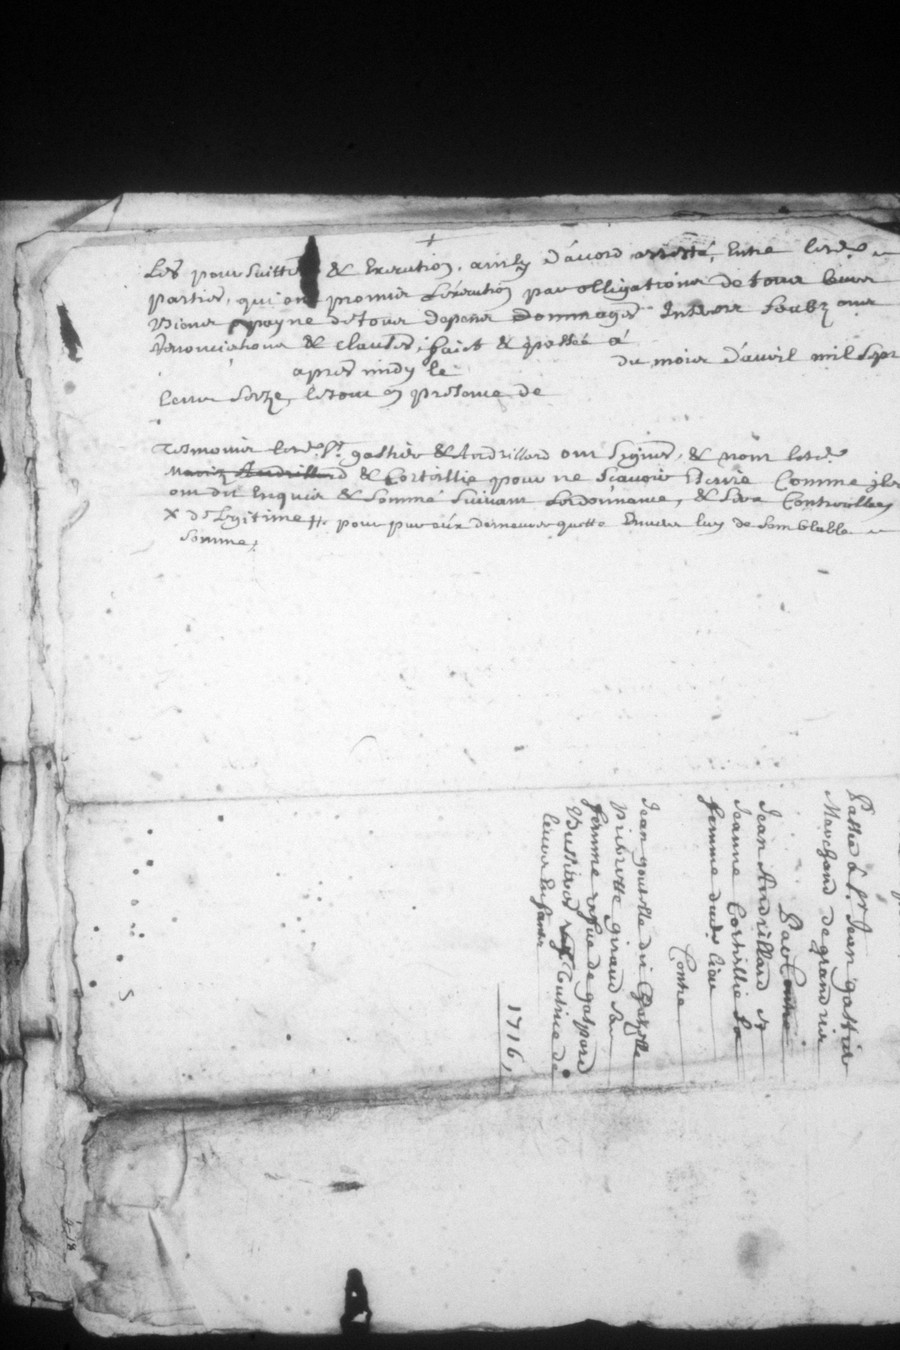 Les poursuittes & Execution, ainsy d'acord arresté, Entre lesd.
parties, qui on promis L'execution par obligations de tous leurs
Biens a payne de tous depens Dommages Interes soubz
Renonciations & clauses, faict & passée à
apres midy le du mois d'avril mil sept
Cens Seize, le tout en presence de
Tesmoins lesd. Sr. gattier & Andrillard ont signés, & non lesd.
& Cortillie pour ne scavoir Escrire Comme ils
ont dit Enquis & sommé suivant L'ordonnance, & sera Controollees
X de Legitime pour par eux demeurer quitte Envers luy de semblable
somme,
Passée à Sr Jean gattier
Marchand de grandris
Par
Jean Andrillard et
Jeanne Cortillie sa
femme dud. lieu
Contre
Jean gouttle du
Pierrotte giraud sa
femme vefue de gaspard
Bussiere Tutrice de
leurs Enfans
1716,